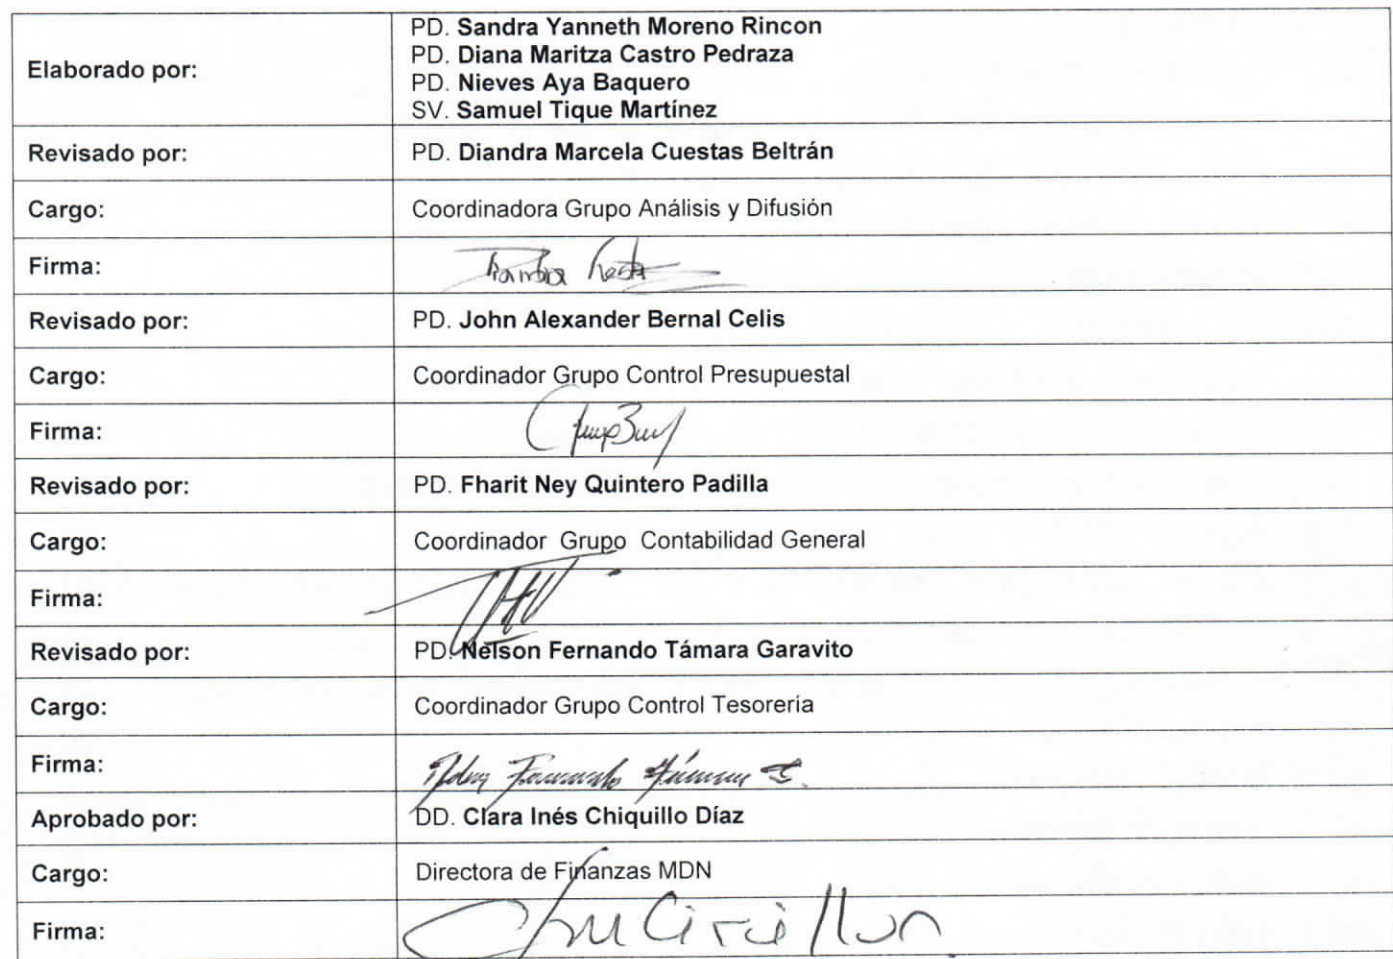 Elaborado por:
PD. Sandra Yanneth Moreno Rincon
PD. Diana Maritza Castro Pedraza
PD. Nieves Aya Baquero
SV. Samuel Tique Martínez
Revisado por: PD. Diandra Marcela Cuestas Beltrán
Cargo: Coordinadora Grupo Análisis y Difusión
Firma:
Revisado por: PD. John Alexander Bernal Celis
Cargo: Coordinador Grupo Control Presupuestal
Firma:
Revisado por: PD. Fharit Ney Quintero Padilla
Cargo: Coordinador Grupo Contabilidad General
Firma:
Revisado por: PD. Nelson Fernando Támara Garavito
Cargo: Coordinador Grupo Control Tesorería
Firma:
Aprobado por: DD. Clara Inés Chiquillo Díaz
Cargo: Directora de Finanzas MDN
Firma: